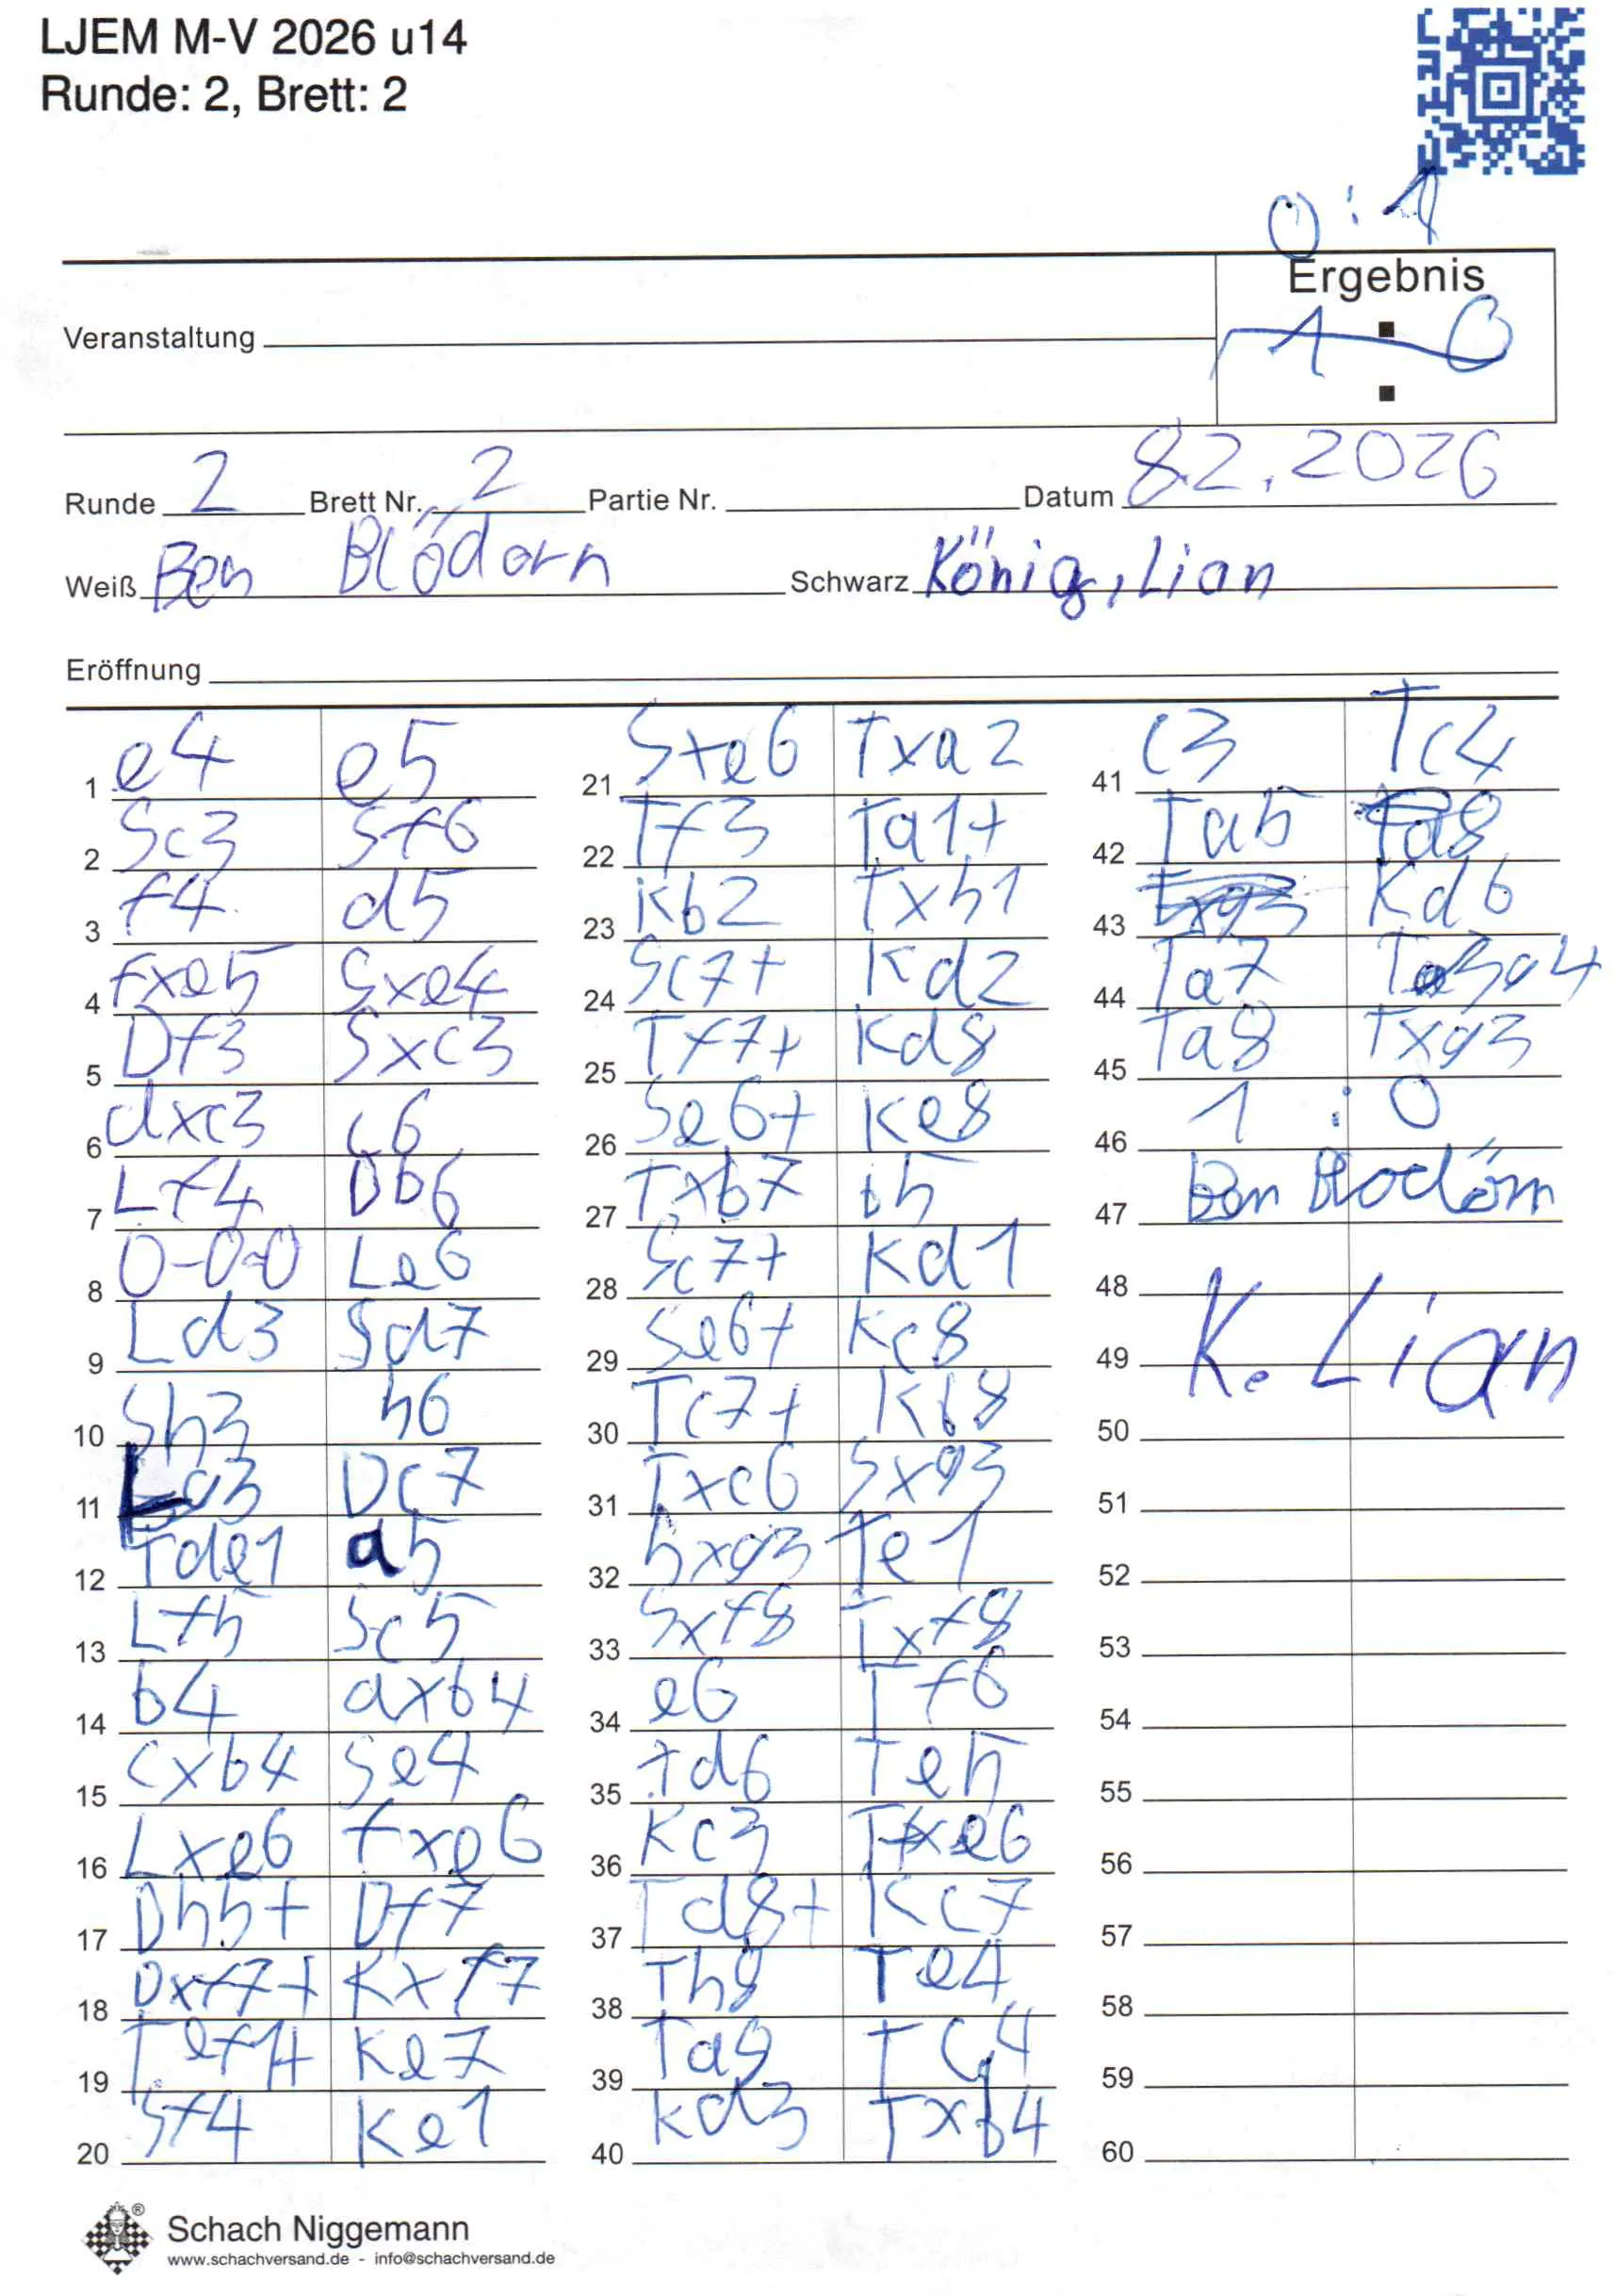 LJEM M-V 2026 u14
Runde: 2, Brett: 2
0 : 1
Ergebnis
1 : 0
Veranstaltung
Runde 2 Brett Nr. 2 Partie Nr. Datum 8.2.2026
Weiß Ben Blödorn Schwarz König, Lian
Eröffnung
1 e4 e5
2 Sc3 Sf6
3 f4 d5
4 fxe5 Sxe4
5 Df3 Sxc3
6 dxc3 c6
7 Lf4 Db6
8 0-0-0 Le6
9 Ld3 Sd7
10 Sh3 h6
11 Lg3 Dc7
12 Tde1 a5
13 Lf5 Sc5
14 b4 axb4
15 cxb4 Se4
16 Lxe6 fxe6
17 Dh5+ Df7
18 Dxf7+ Kxf7
19 Tef1+ Ke7
20 Sf4 Ke1
21 Sxe6 Txa2
22 Tf3 Ta1+
23 Kb2 Txh1
24 Sc7+ Kd2
25 Tf7+ Kd8
26 Se6+ Ke8
27 Txb7 h5
28 Sc7+ Kd1
29 Se6+ Kc8
30 Tc7+ Kb8
31 Txc6 Sxg3
32 hxg3 Te1
33 Sxf8 Txf8
34 e6 Tf6
35 Td6 Te5
36 Kc3 Txe6
37 Td8+ Kc7
38 Th8 Te4
39 Ta8 Tc4
40 Kd3 Txb4
41 c3 Tc4
42 Ta5 Td8
43 Txg3 Kd6
44 Ta7 Tg4
45 Ta8 Txg3
46 1 : 0
47 Ben Blodörn
48
49 K. Lian
50
51
52
53
54
55
56
57
58
59
60
Schach Niggemann
www.schachversand.de - info@schachversand.de